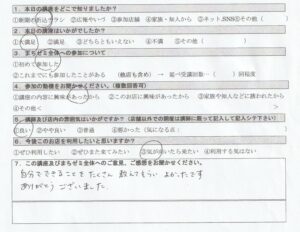 1．本日の講座をどこで知りましたか？
①新聞の折込チラシ ②広報やいづ ③参加店舗 ④家族・知人から ⑤ネット、SNS⑥その他（ ）
2．本日の講座はいかがでしたか？
①大満足 ②満足 ③どちらともいえない ④不満 ⑤その他（ ）
3．まちゼミ全体への参加について
①初めて参加した
②これまでも参加したことがある （他店も含め） → 延べ受講回数…（ ）回程度
4．参加の動機をお聞かせください。（複数回答可）
①講座の内容に興味があったから ②このお店に興味があったから ③家族や知人などに誘われたから
④その他＜
5．講師及び店内の雰囲気はいかがですか？（店舗以外での開催は講師に限って記入下さい）
①良い ②やや良い ③普通 ④悪かった（気になる点）
6．今後このお店を利用したいと思いますか？
①ぜひ利用したい ②ぜひまた来てみたい ③気が向いたら来たい ④利用する気はない
7．この講座及びまちゼミ全体へのご意見、ご感想をお聞かせください。
自分でできることをたくさん教えてもらいよかったです
ありがとうございました。